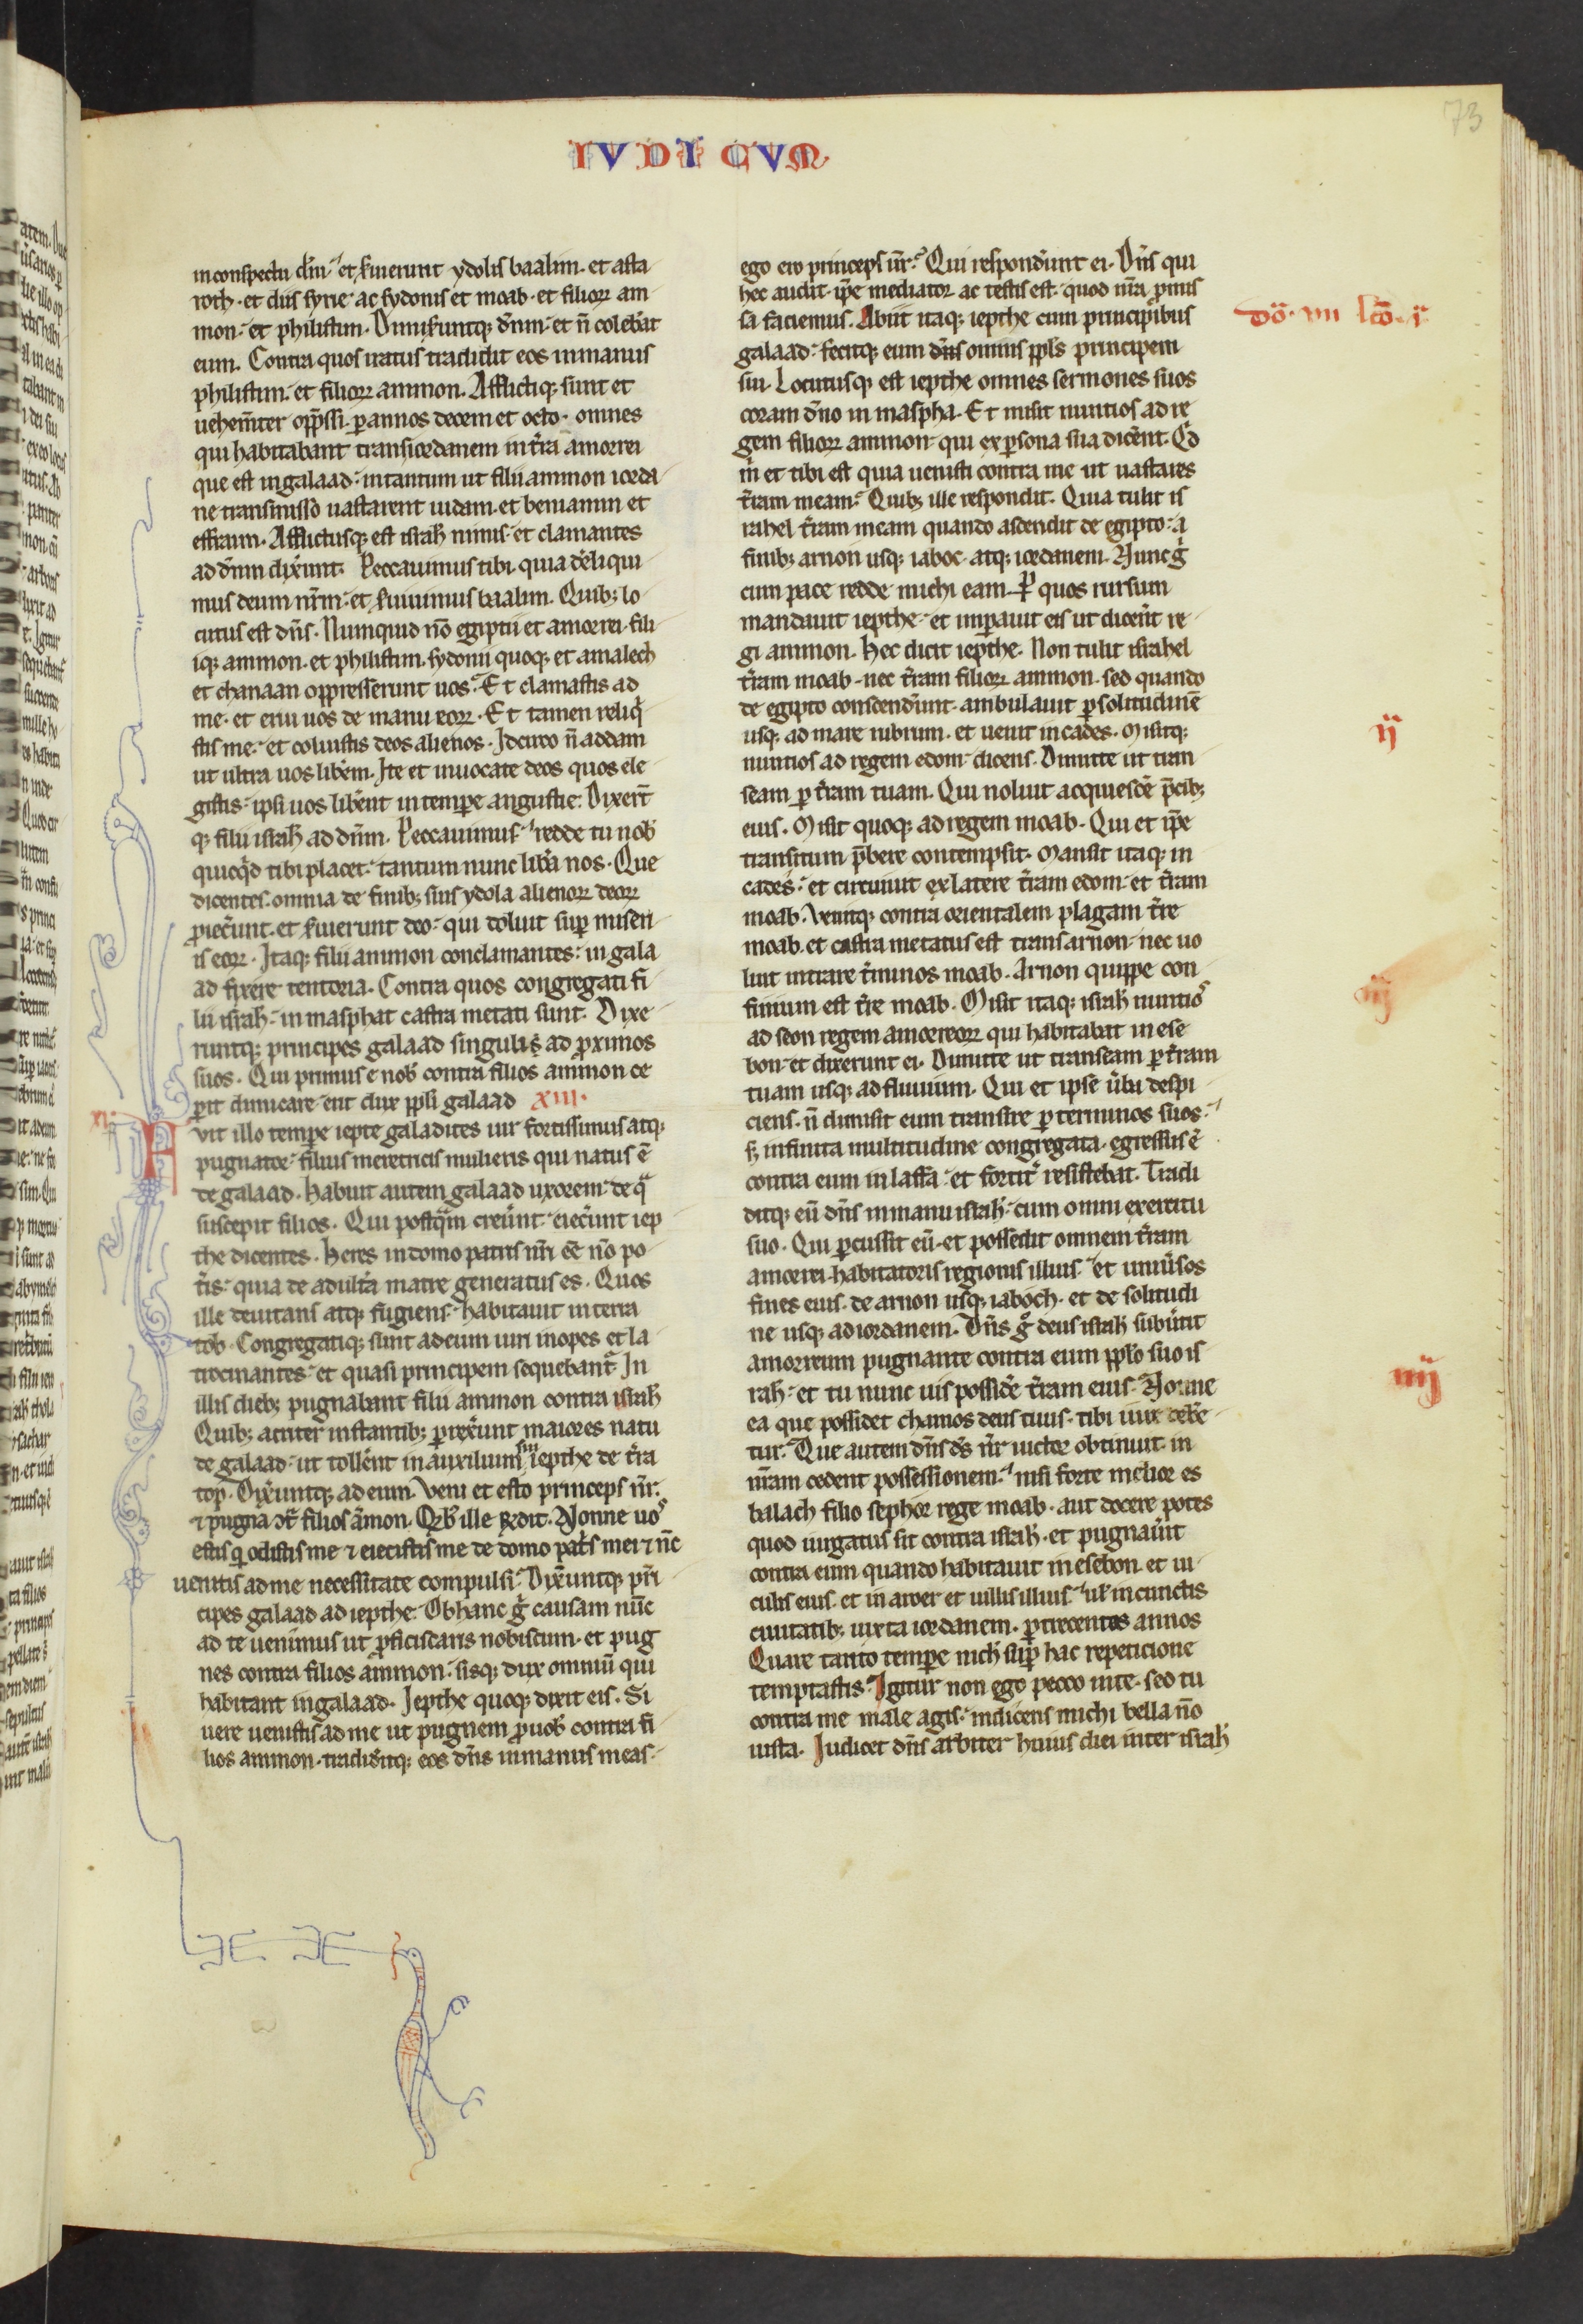 73
IVDICVM
in conspectu dn̄i. et s̄uierunt ydolis baalim. et asta
roth. et diis syrie ac sydonis et moab. et filioꝝ am
mon. et philistim. Dimis̄untqꝫ dn̄m. et n̄ colebāt
eum. Contra quos iratus tradidit eos in manus
philistim. et filioꝝ ammon. Afflictiqꝫ sunt et
uehem̄ter opp̄ssi. ꝑ annos decem et octo. omnes
qui habitabant trans iordanem in t̄ra amorrei
que est in galaad. intantum ut filii ammon iorda
ne transmisso uastarent iudam. et beniamin et
effraim. Afflictusqꝫ est isrl̄ nimis. et clamantes
ad dn̄m dix̄unt. Peccauimus tibi. quia deliqui
mus deum nr̄m. et s̄uiuimus baalim. Quibꝫ lo
cutus est dn̄s. Numquid nō egiptii et amorrei. fili
iqꝫ ammon. et philistim. sydonii quoqꝫ et amalech
et chanaan oppresserunt uos. Et clamastis ad
me. et erui uos de manu eoꝝ. Et tamen reliq̄
stis me. et coluistis deos alienos. Idcirco n̄ addam
ut ultra uos lib̄em. Ite et inuocate deos quos ele
gistis. ipsi uos lib̄ent in tempore angustie. Dixer̄t
qꝫ filii isrl̄ ad dn̄m. Peccauimus. redde tu nob̄
quicq̄d tibi placet. tantum nunc lib̄a nos. Que
dicentes. omnia de finibꝫ suis ydola alienoꝝ deoꝝ
ꝓiec̄unt. et s̄uierunt deo. qui doluit sup̄ miseri
is eoꝝ. Itaqꝫ filii ammon conclamantes. in gala
ad fixere tentoria. Contra quos congregati fi
lii isrl̄. in masphat castra metati sunt. Dixe
runtqꝫ principes galaad singulis ad ꝓximos
suos. Qui primus e nob̄ contra filios ammon ce
ꝑit dimicare. erit dux ppl̄i galaad XIII.
XI. Fvit illo tempore iepte galadites uir fortissimus atqꝫ
pugnator. filius meretricis mulieris qui natus ē
de galaad. Habuit autem galaad uxorem. de q̄
suscepit filios. Qui postq̄m creū̄nt. eiec̄unt iep
the dicentes. Heres in domo patris nr̄i ēe nō po
t̄is. quia de adult̄a matre generatus es. Quos
ille deuitans atqꝫ fugiens. habitauit in terra
tob. Congregatiqꝫ sunt ad eum uiri inopes et la
trocinantes. et quasi principem sequebant̄. In
illis diebꝫ pugnabant filii ammon contra isrl̄
Quibꝫ acriter instantibꝫ ꝑrex̄unt maiores natu
de galaad. ut toll̄ent in auxilium sui iepthe de t̄ra
top. Dix̄untqꝫ ad eum. Veni et esto princeps nr̄.
⁊ pugna ↄt̄ filios āmon. Qib̄ ille r̄dit. Nonne uos
estis q̄ odistis me ⁊ eiecistis me de domo pat̄s mei ⁊ nc̄
uenitis ad me necessitate compulsi. Dix̄untqꝫ pri
cipes galaad ad iepthe. Ob hanc g̊ causam nūc
ad te uenimus ut ꝓficiscaris nobiscum. et pug
nes contra filios ammon. sisqꝫ dux omniū qui
habitant in galaad. Iepthe quoqꝫ dixit eis. Si
uere uenistis ad me ut pugnem ꝓ uob̄ contra fi
lios ammon. tradid̄itqꝫ eos dn̄s in manus meas.
ego ero princeps ur̄. Qui respond̄unt ei. Dn̄s qui
hec audit. ip̄e mediator ac testis est. quod nr̄a ꝓmis
sa faciemus. Abiit itaqꝫ iepthe cum principibus
galaad. fecitqꝫ eum dn̄s omnis ppl̄s principem
sui. Locutusqꝫ est iepthe omnes sermones suos
coram dn̄o in maspha. Et misit nuntios ad re
gem filioꝝ ammon. qui ex ꝑsona sua dic̄ent. Qd̄
m̄ et tibi est quia uenisti contra me ut uastares
t̄ram meam. Quibꝫ ille respondit. Quia tulit is
rahel t̄ram meam quando ascendit de egipto. a
finibꝫ arnon usqꝫ iaboc. atqꝫ iordanem. Nunc g̊
cum pace redde michi eam. Ꝑ quos rursum
mandauit iepthe. et imp̄auit eis ut dic̄ent re
gi ammon. Hec dicit iepthe. Non tulit israhel
t̄ram moab. nec t̄ram filioꝝ ammon. sed quando
de egipto conscend̄unt. ambulauit ꝑ solitudinē
usqꝫ ad mare rubrum. et uenit in cades. Misitqꝫ
nuntios ad regem edom. dicens. Dimitte ut tran
seam ꝑ t̄ram tuam. Qui noluit acquiesc̄e p̄cibꝫ
eius. Misit quoqꝫ ad regem moab. Qui et ip̄e
transitum p̄bere contempsit. Mansit itaqꝫ in
cades. et circuiuit ex latere t̄ram edom. et t̄ram
moab. Venitqꝫ contra orientalem plagam t̄re
moab. et castra metatus est trans arnon. nec uo
luit intrare t̄minos moab. Arnon quippe con
finium est t̄re moab. Misit itaqꝫ isrl̄ nuntios
ad seon regem amorreoꝝ qui habitabat in ese
bon. et dixerunt ei. Dimitte ut transeam ꝑ t̄ram
tuam usqꝫ ad fluuium. Qui et ipse ūba despi
ciens. n̄ dimisit eum transire ꝑ terminos suos.
sꝫ infinita multitudine congregata. egressus ē
contra eum in iassa. et fortit̄ resistebat. Tradi
ditqꝫ eū dn̄s in manu isrl̄. cum omni exercitu
suo. Qui ꝑcussit eū. et possedit omnem t̄ram
amorrei. habitatoris regionis illius. et uniūsos
fines eius. de arnon usqꝫ iaboch. et de solitudi
ne usqꝫ ad iordanem. Dn̄s g̊ deus isrl̄ sub̄utit
amorreum pugnante contra eum ppl̄o suo is
rl̄. et tu nunc uis possid̄e t̄ram eius. Nonne
ea que possidet chamos deus tuus. tibi iure debe
tur. Que autem dn̄s ds̄ nr̄ uictor obtinuit. in
nr̄am cedent possessionem. nisi forte melior es
balach filio sephor rege moab. aut docere potes
quod iurgatus sit contra isrl̄. et pugnaūit
contra eum quando habitauit in esebon et ui
culis eius. et in aroer et uillis illius. ul̄ in cunctis
ciuitatibꝫ iuxta iordanem. ꝑ trecentos annos
Quare tanto tempore nich̄ sup̄ hac repeticione
temptastis. Igitur non ego pecco in te. sed tu
contra me male agis. indicens michi bella nō
iusta. Iudicet dn̄s arbiter huius diei inter isrl̄
Dō. VII lcō. i.
ij
iij
iiij